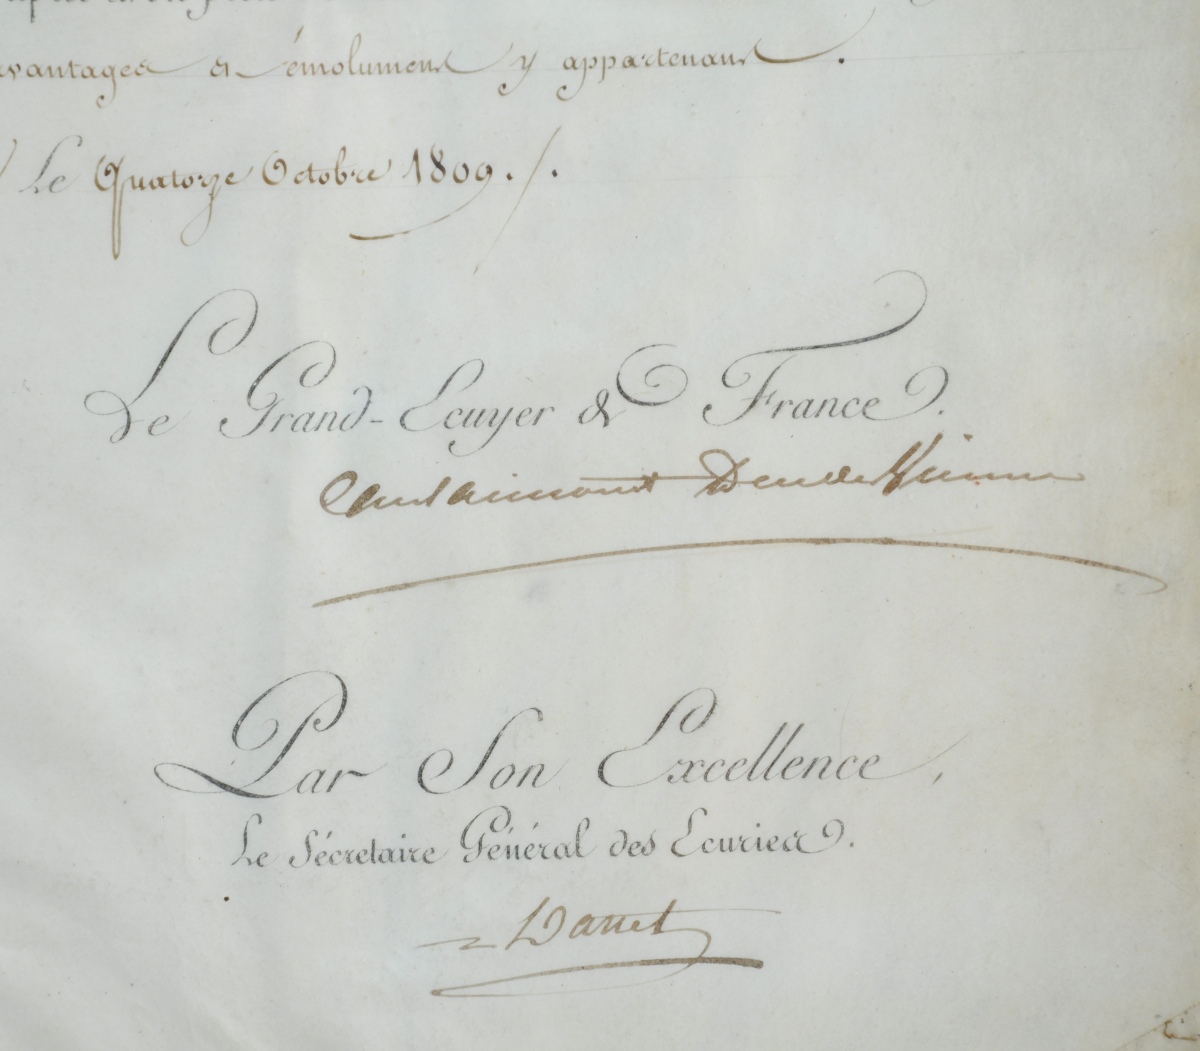 avantages et émolumens y appartenans.
Le Quatorze Octobre 1809./.
Le Grand-Ecuyer de France.
Caulaincourt Duc de Vicence
Par Son Excellence,
Le Sécretaire Général des Ecuries.